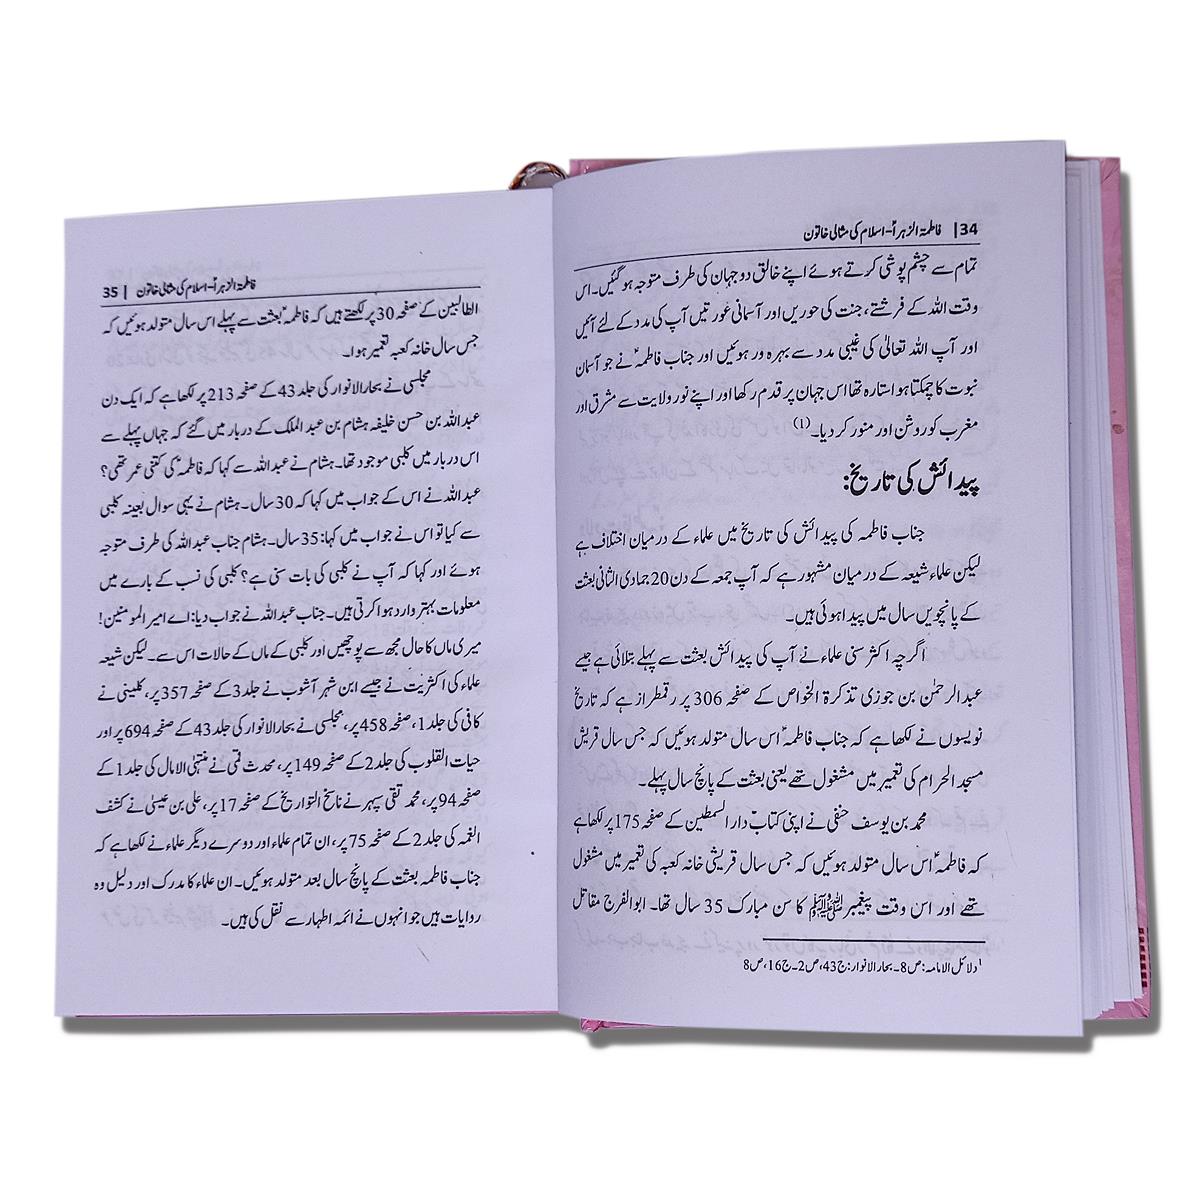 34| فاطمۃ الزہراؑ-اسلام کی مثالی خاتون
تمام سے چشم پوشی کرتے ہوئے اپنے خالق دو جہان کی طرف متوجہ ہو گئیں۔ اس
وقت اللہ کے فرشتے، جنت کی حوریں اور آسمانی عورتیں آپ کی مدد کے لئے آئیں
اور آپ اللہ تعالیٰ کی غیبی مدد سے بہرہ ور ہوئیں اور جناب فاطمہؑ نے جو آسمان
نبوت کا چمکتا ہوا ستارہ تھا اس جہان پر قدم رکھا اور اپنے نور ولایت سے مشرق اور
مغرب کو روشن اور منور کر دیا۔(1)
پیدائش کی تاریخ:
جناب فاطمہ کی پیدائش کی تاریخ میں علماء کے درمیان اختلاف ہے
لیکن علماء شیعہ کے درمیان مشہور ہے کہ آپ جمعہ کے دن 20 جمادی الثانی بعثت
کے پانچویں سال میں پیدا ہوئی ہیں۔
اگرچہ اکثر سنی علماء نے آپ کی پیدائش بعثت سے پہلے بتلائی ہے جیسے
عبدالرحمٰن بن جوزی تذکرۃ الخواص کے صفحہ 306 پر رقمطراز ہے کہ تاریخ
نویسوں نے لکھا ہے کہ جناب فاطمہؑ اس سال متولد ہوئیں کہ جس سال قریش
مسجد الحرام کی تعمیر میں مشغول تھے یعنی بعثت کے پانچ سال پہلے۔
محمد بن یوسف حنفی نے اپنی کتاب دار السمطین کے صفحہ 175 پر لکھا ہے
کہ فاطمہؑ اس سال متولد ہوئیں کہ جس سال قریشی خانہ کعبہ کی تعمیر میں مشغول
تھے اور اس وقت پیغمبرﷺ کا سن مبارک 35 سال تھا۔ ابوالفرج مقاتل
1 دلائل الامامہ: ص8۔ بحار الانوار: ج43، ص2۔ ج16، ص8
فاطمۃ الزہراؑ-اسلام کی مثالی خاتون | 35
الطالبین کے صفحہ 30 پر لکھتے ہیں کہ فاطمہؑ بعثت سے پہلے اس سال متولد ہوئیں کہ
جس سال خانہ کعبہ تعمیر ہوا۔
مجلسی نے بحار الانوار کی جلد 43 کے صفحہ 213 پر لکھا ہے کہ ایک دن
عبداللہ بن حسن خلیفہ ہشام بن عبد الملک کے دربار میں گئے کہ جہاں پہلے سے
اس دربار میں کلبی موجود تھا۔ ہشام نے عبداللہ سے کہا کہ فاطمہؑ کی کتنی عمر تھی؟
عبداللہ نے اس کے جواب میں کہا کہ 30 سال۔ ہشام نے یہی سوال بعینہ کلبی
سے کیا تو اس نے جواب میں کہا: 35 سال۔ ہشام جناب عبداللہ کی طرف متوجہ
ہوئے اور کہا کہ آپ نے کلبی کی بات سنی ہے؟ کلبی کی نسب کے بارے میں
معلومات بہتر وارد ہوا کرتی ہیں۔ جناب عبداللہ نے جواب دیا: اے امیر المومنین!
میری ماں کا حال مجھ سے پوچھیں اور کلبی کے ماں کے حالات اس سے۔ لیکن شیعہ
علماء کی اکثریت نے جیسے ابن شہر آشوب نے جلد 3 کے صفحہ 357 پر، کلینی نے
کافی کی جلد 1، صفحہ 458 پر، مجلسی نے بحار الانوار کی جلد 43 کے صفحہ 694 پر اور
حیات القلوب کی جلد 2 کے صفحہ 149 پر، محدث قمی نے منتہی الامال کی جلد 1 کے
صفحہ 94 پر، محمد تقی سپہر نے ناسخ التواریخ کے صفحہ 17 پر، علی بن عیسیٰ نے کشف
الغمہ کی جلد 2 کے صفحہ 75 پر، ان تمام علماء اور دوسرے دیگر علماء نے لکھا ہے کہ
جناب فاطمہ بعثت کے پانچ سال بعد متولد ہوئیں۔ ان علماء کا مدرک اور دلیل وہ
روایات ہیں جو انہوں نے ائمہ اطہار سے نقل کی ہیں۔